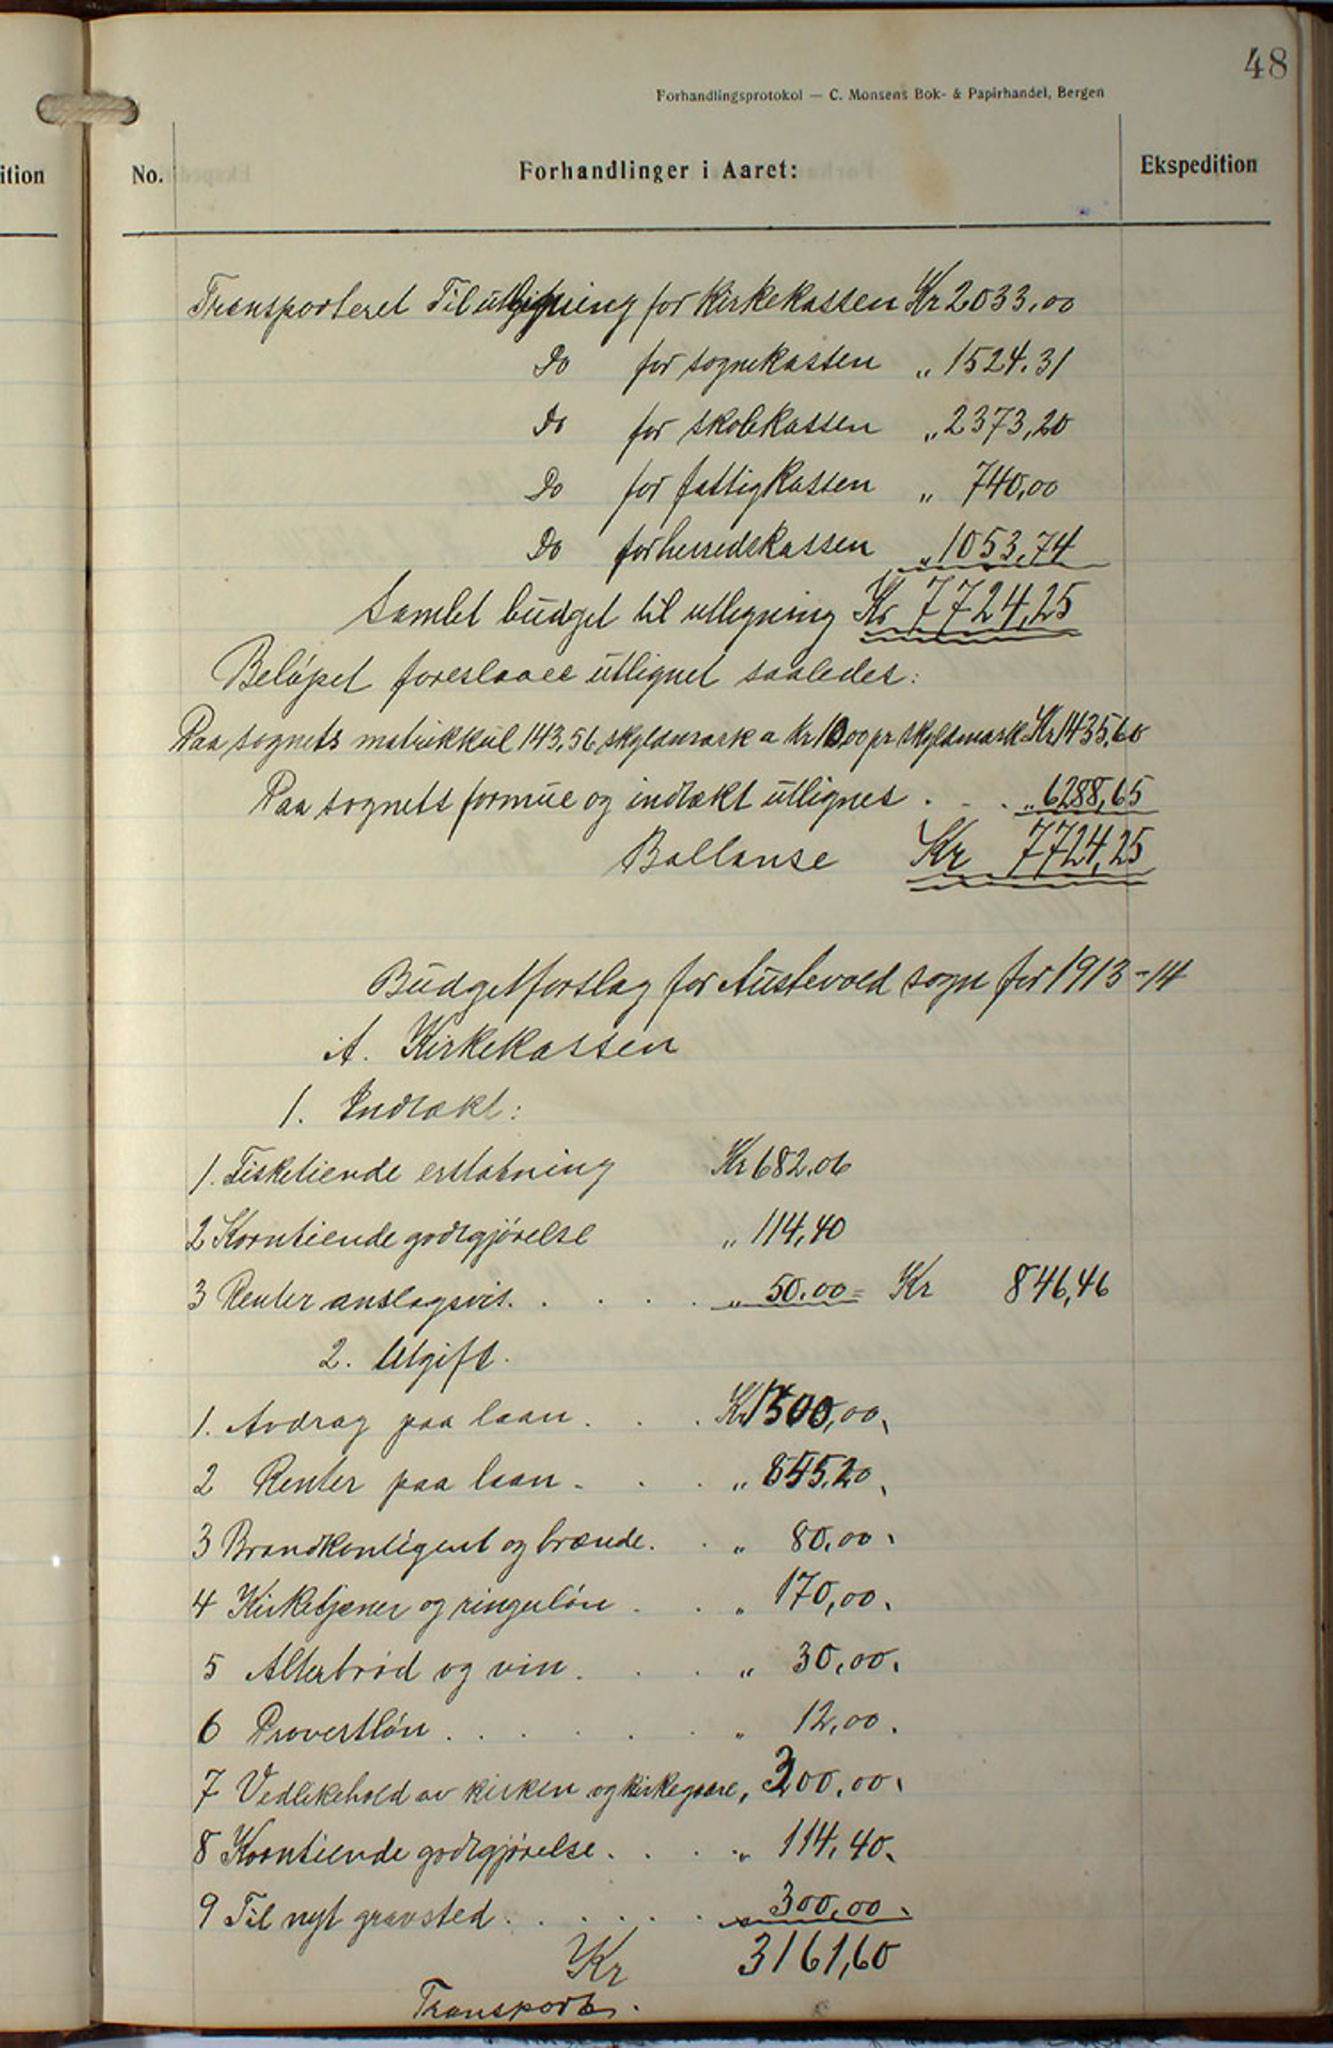 48
Forhandlingsprotokol — C. Monsens Bok- & Papirhandel, Bergen
ition
No.
Forhandlinger i Aaret:
Ekspedition
Transporteret Til utligning for Kirkekassen Kr 2033,00
Do for sognekassen „ 1524.31
Do for skolekassen „ 2373,20
Do for fattigkassen „ 740,00
Do for herredskassen „ 1053,74
Samlet budget til utlegning Kr 7724,25
Beløpet foreslaaes utlignet saaledes:
Paa sognets matrikkul 143,56 skyldmark a Kr 10.00 pr skyldmark Kr 1435,60
Paa sognets formue og indtækt utlignes . . . „ 6288,65
Ballanse Kr 7724,25
Budgetforslag for Austevold sogn for 1913-14
A. Kirkekassen
1. Indtækt:
1. Fisketiende erstatning Kr 682.06
2 Korntiende godtgjørelse „ 114,40
3 Renter anslagsvis. . . . . „ 50.00 = Kr 846,46
2. Utgift.
1. Avdrag paa laan . . . Kr 1300,00,
2 Renter paa laan . . . „ 855,20,
3 Brandkontigent og brænde. . „ 80,00.
4 Kirketjener og ringerløn . . „ 170,00.
5 Alterbrød og vin. . . „ 30,00.
6 Provertløn . . . . . „ 12,00.
7 Vedlikehold av kirken og kirkegaare, 300,00.
8 Korntiende godtgjørelse . . . „ 114,40.
9 Til nyt gravsted . . . . . . 300,00.
Kr 3161,60
Transport.